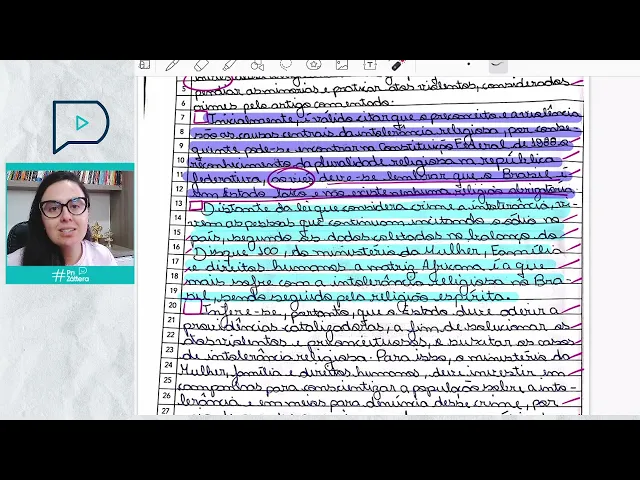 judiar as minorias e praticar atos violentos, considerados
crimes pelo artigo comentado.
Inicialmente, é válido citar que o preconceito e a violência
são as causas centrais da intolerância religiosa, por conse-
guinte, pode-se encontrar na Constituição Federal de 1988 o
reconhecimento da pluralidade religiosa na república
federativa, deve-se lembrar que o Brasil é
um Estado laico e não existe nenhuma religião obrigatória.
Distante da lei que considera crime a intolerância, vi-
vem as pessoas que continuam incitando o ódio no
país, segundo os dados coletados no balanço do
Disque 100, do ministério da Mulher, Família
e direitos humanos a matriz Africana é a que
mais sofre com a intolerância religiosa no Bra-
sil, sendo seguido pela religião espírita.
Infere-se, portanto, que o Estado deve aderir a
providências catalizadoras, a fim de solucionar os
atos violentos e preconceituosos, e suscitar os casos
de intolerância religiosa. Para isso, o ministério da
Mulher, família e direitos humanos, deve investir em
campanhas para conscientizar a população sobre a into-
lerância e em meios para denúncia desse crime, por
5
6
7
8
9
10
11
12
13
14
15
16
17
18
19
20
21
22
23
24
25
26
27
#Pro Zattera